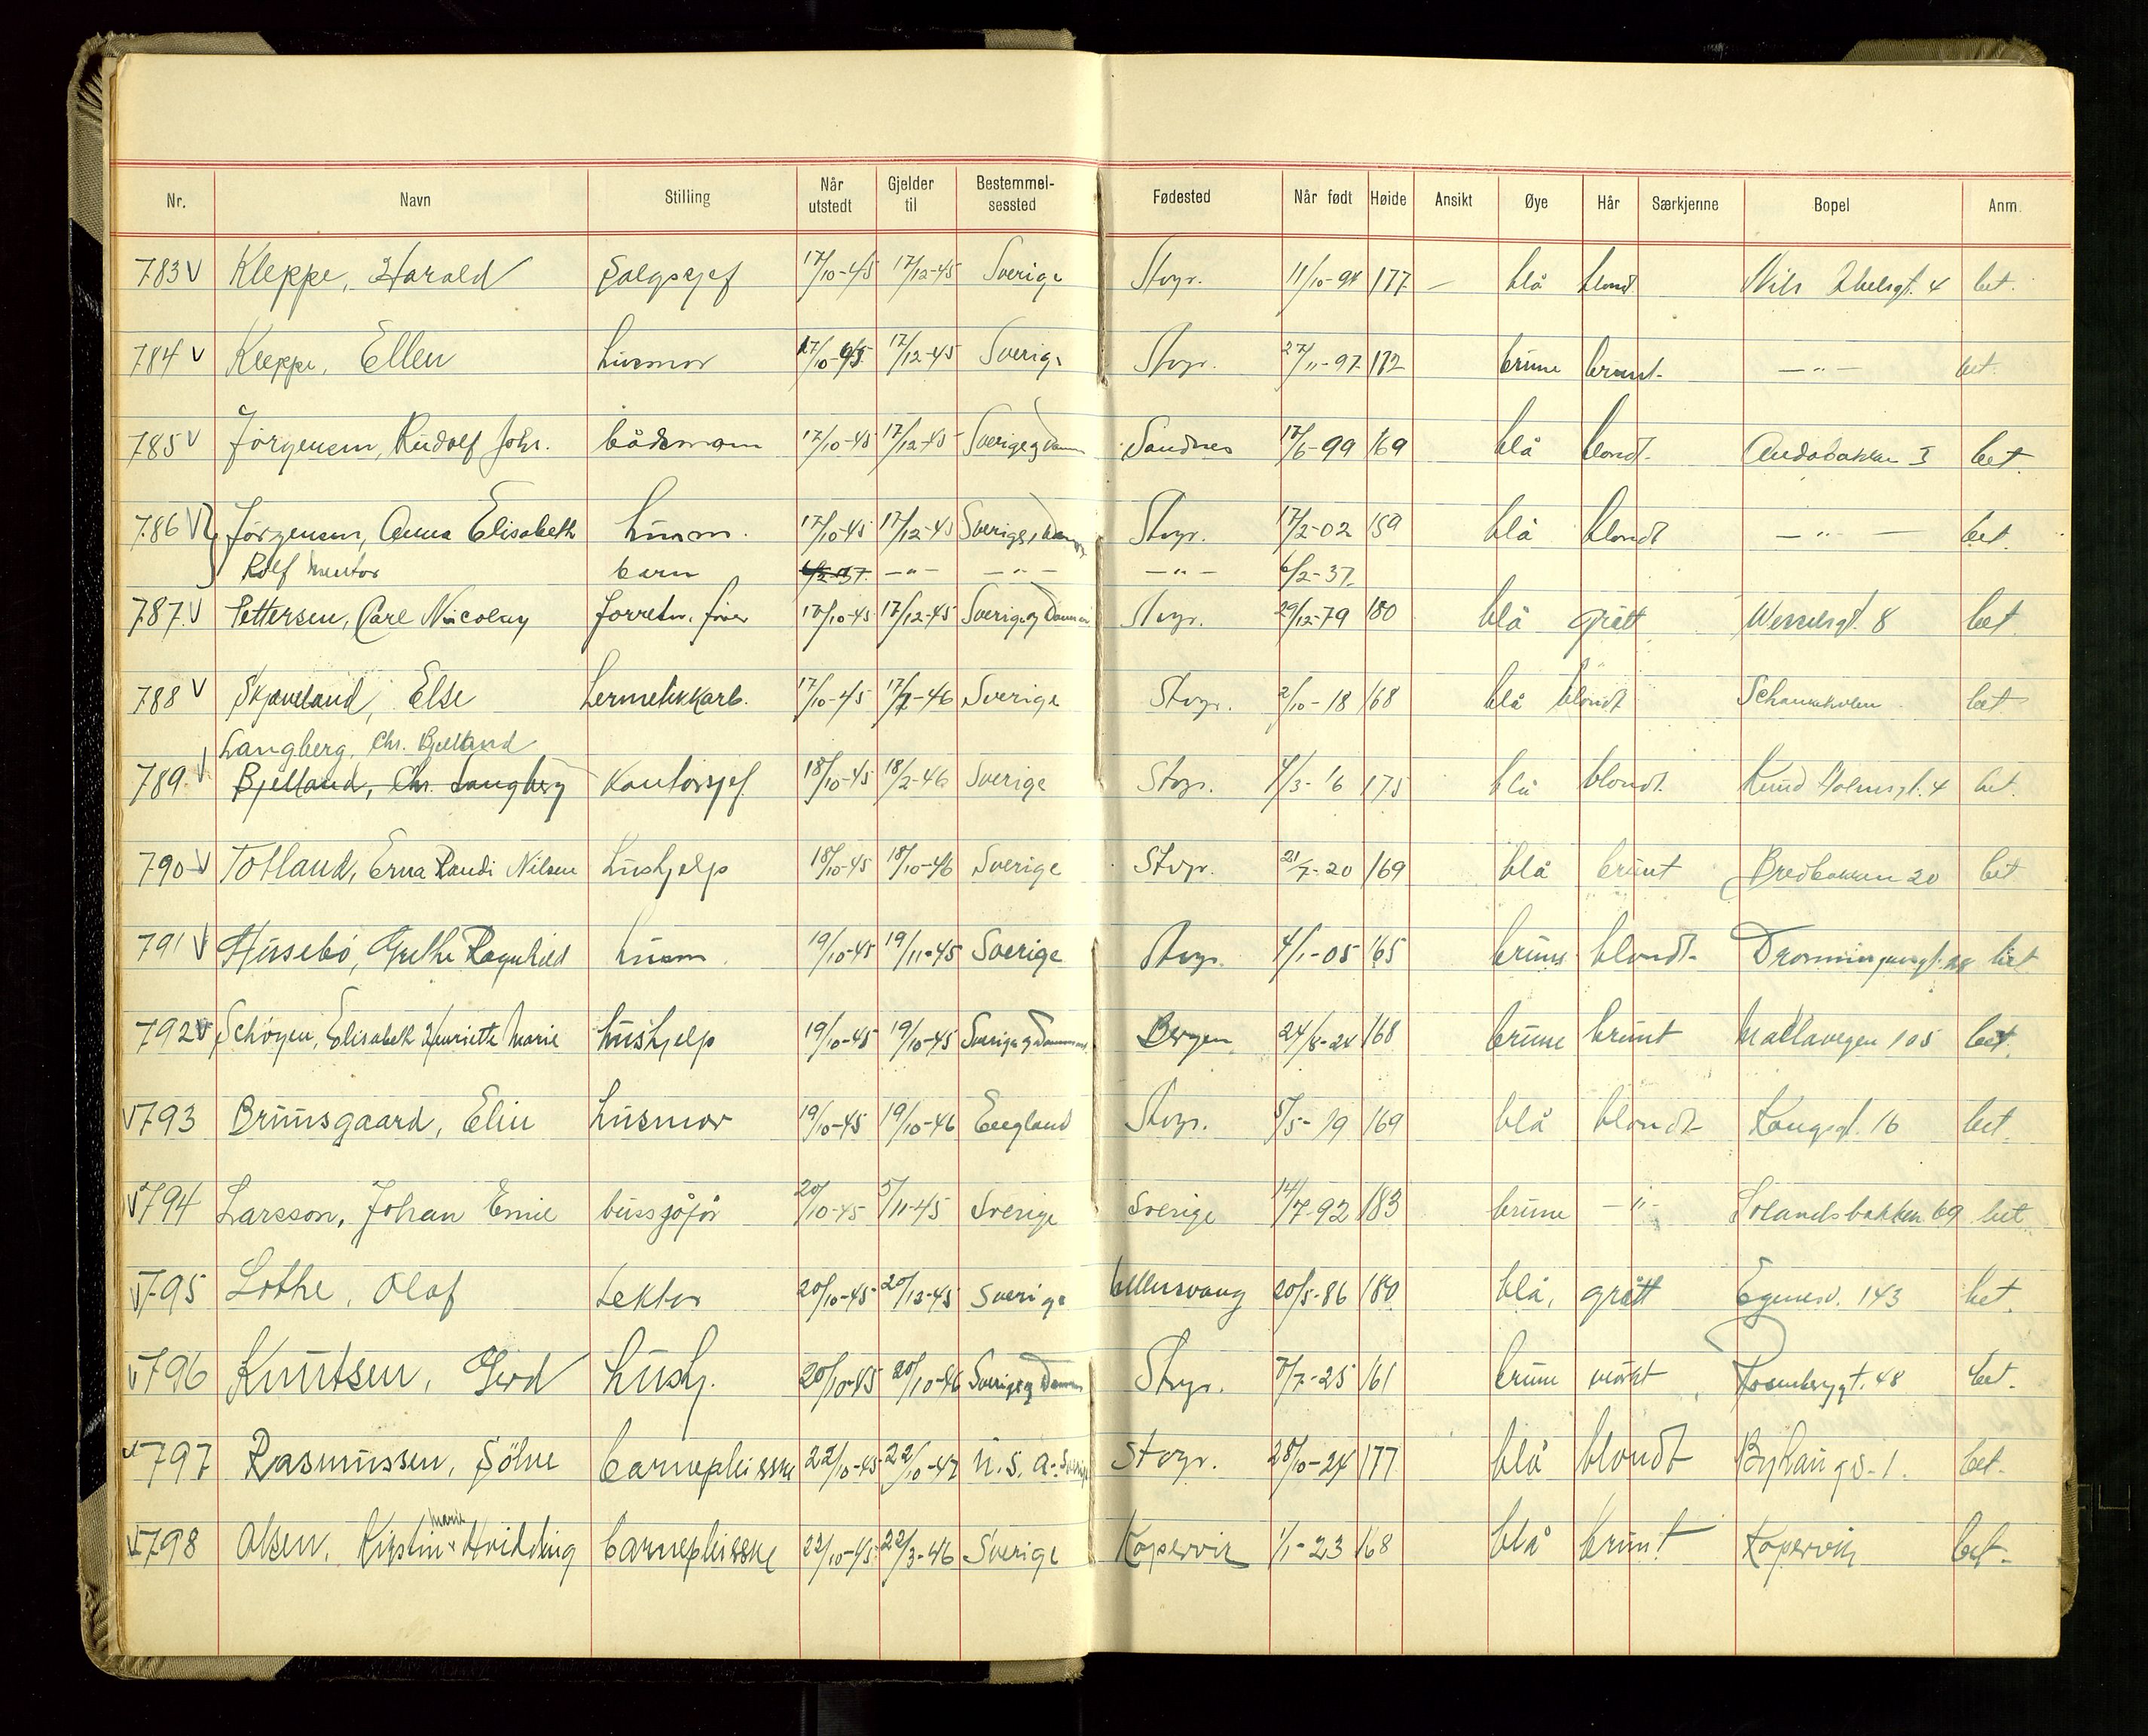 Nr. Navn Stilling Når utstedt Gjelder til Bestemmelsessted Fødested Når født Høide Ansikt Øye Hår Særkjenne Bopel Anm.
783 V Kleppe, Harald Salgssjef 17/10-45 17/12-45 Sverige Stvgr. 11/10-94 177 — blå blond Nils Abelsgt. 4 bet.
784 V Kleppe, Ellen husmor 17/10-45 17/12-45 Sverige Stvgr. 27/11-97 172 brune brunt — " — bet.
785 V Jörgensen, Rudolf Johs. bådsmann 17/10-45 17/12-45 Sverige og Danm Sandnes 17/6-99 169 blå blondt Andabakken I bet.
786 V Jörgensen, Anna Elisabeth husm. 17/10-45 17/12-45 Sverige, Danm Stvgr. 17/2-02 159 blå blondt — " — bet.
Rolf Mentor barn 6/2-37 — " — — " — — " — 6/2-37
787. V Pettersen, Carl Nicolay forretn. fører 17/10-45 17/12-45 Sverige og Danm Stvgr. 29/12-79 180 blå grått Wesselsgt. 8 bet.
788 V Skjæveland, Else hermetikkarb. 17/10-45 17/7-46 Sverige Stvgr. 2/10-18 168 blå blondt bet
Langberg, Chr. Bjelland
789. V Bjelland, Chr. Langberg Kontorsjef 18/10-45 18/2-46 Sverige Stvgr. 4/3-16 175 blå blondt. Knud Holmsgt. 4 bet.
790 V Totland, Erna Randi Nilsen hushjelp 18/10-45 18/10-46 Sverige Stvgr. 21/7-20 169 blå brunt Bredbakken 20 bet
791 V Husebö, Grethe Ragnhild husm. 19/10-45 19/11-45 Sverige Stvgr. 4/1-05 165 brune blondt Dronningensgt. 28 bet
792 V Schöyen, Elisabeth Henriette Marie hushjelp 19/10-45 19/10-45 Sverige og Danmark Bergen 24/8-24 168 brune brunt Matlavegen 105 bet.
V 793 Bruusgaard, Elin husmor 19/10-45 19/10-46 England Stvgr. 5/5-19 169 blå blondt Kongsgt. 16 bet.
V 794 Larsson, Johan Emil bussjåför 20/10-45 5/11-45 Sverige Sverige 14/7-92 183 brune — " — Solandsbakken 69 bet
V 795 Lothe, Olaf Lektor 20/10-45 20/12-45 Sverige Ullensvang 20/5-86 180 blå, grått Egenesv. 143 bet.
V 796 Knutsen, Gerd hushj. 20/10-45 20/10-46 Sverige og Danm Stvgr. 7/7-25 161 brune mörkt Rosenberggt. 48 bet.
V 797 Rasmussen, Sölve barnepleierske 22/10-45 22/10-47 U.S.A. Sverige Stvgr. 28/10-24 177 blå blondt Byhaugs-1. bet.
Marie
V 798 Olsen, Kirstin Hvidding barnepleierske 22/10-45 22/3-46 Sverige Kopervik 1/1-23 168 blå brunt Kopervik bet.